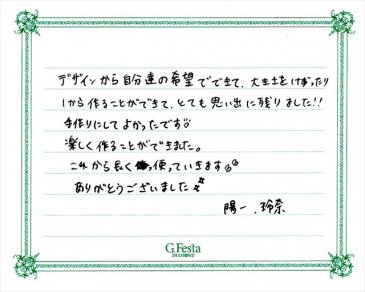 デザインから自分達の希望でできて、大きさをけずったり
1から作ることができて、とても思い出に残りました!!
手作りにしてよかったです
楽しく作ることができました。
これから長く使っていきます
ありがとうございました
陽一、玲奈
G.Festa
DIAMOND